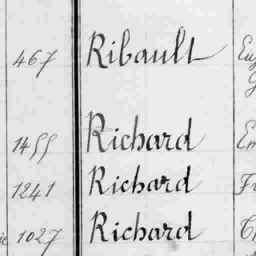 467 Ribault
1455 Richard Em
1241 Richard
1027 Richard